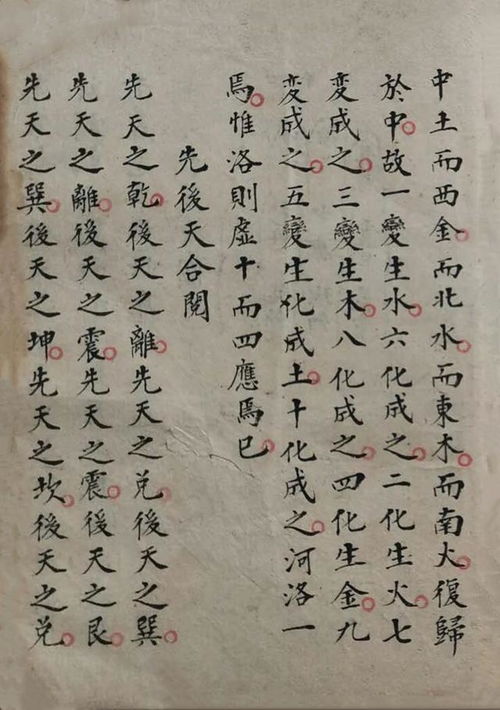 中土而西金。而北水。而東木。而南火。復歸
於中。故一變生水。六化成之。二化生火。七
変成之。三變生木。八化成之。四化生金。九
変成之。五變生化成土。十化成之。河洛一
焉。惟洛則虛十而四應焉已。
先後天合閱
先天之乾。後天之離。先天之兌。後天之巽。
先天之離。後天之震。先天之震。後天之艮。
先天之巽。後天之坤。先天之坎。後天之兌。